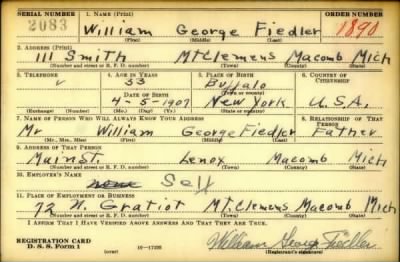 SERIAL NUMBER 1. NAME (Print) ORDER NUMBER
2083 William George Fiedler 1890
(First) (Middle) (Last)
2. ADDRESS (Print)
111 Smith Mt Clemens Macomb Mich
(Number and street or R. F. D. number) (Town) (County) (State)
3. TELEPHONE 4. AGE IN YEARS 5. PLACE OF BIRTH 6. COUNTRY OF CITIZENSHIP
33 Buffalo
DATE OF BIRTH (Town or county)
4-5-1907 New York U.S.A.
(Exchange) (Number) (Mo.) (Day) (Yr.) (State or country)
7. NAME OF PERSON WHO WILL ALWAYS KNOW YOUR ADDRESS 8. RELATIONSHIP OF THAT PERSON
Mr William George Fiedler Father
(Mr., Mrs., Miss) (First) (Middle) (Last)
9. ADDRESS OF THAT PERSON
Main St. Lenox Macomb Mich
(Number and street or R. F. D. number) (Town) (County) (State)
10. EMPLOYER'S NAME
none Self
11. PLACE OF EMPLOYMENT OR BUSINESS
72 N. Gratiot Mt. Clemens Macomb Mich
(Number and street or R. F. D. number) (Town) (County) (State)
I AFFIRM THAT I HAVE VERIFIED ABOVE ANSWERS AND THAT THEY ARE TRUE.
REGISTRATION CARD
D. S. S. Form 1 (over) 16—17105 William George Fiedler
(Registrant's signature)